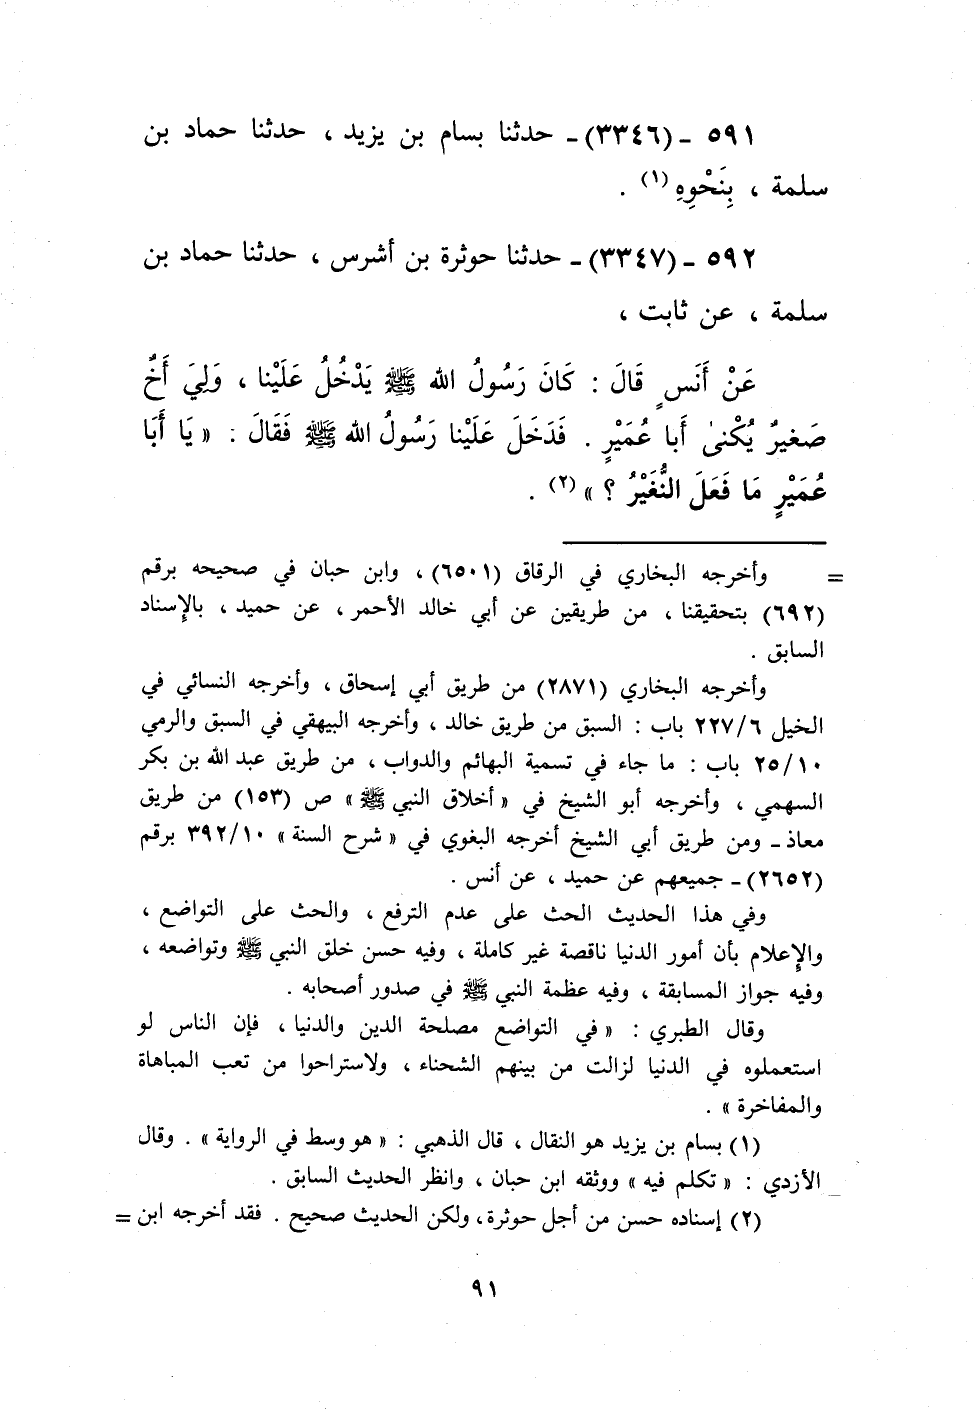 ٥٩١ ـ (٣٣٤٦) ـ حدثنا بسام بن يزيد ، حدثنا حماد بن
سلمة ، بِنَحْوِهِ (١) .
٥٩٢ ـ (٣٣٤٧) ـ حدثنا حوثرة بن أشرس ، حدثنا حماد بن
سلمة ، عن ثابت ،
عَنْ أَنَسٍ قَالَ : كَانَ رَسُولُ الله ﷺ يَدْخُلُ عَلَيْنا ، وَلِيَ أَخٌ
صَغيرٌ يُكْنىٰ أَبا عُمَيْرٍ . فَدَخَلَ عَلَيْنا رَسُولُ الله ﷺ فَقَالَ : « يَا أَبَا
عُمَيْرٍ مَا فَعَلَ النُّغَيْرُ ؟ » (٢) .
= وأخرجه البخاري في الرقاق (٦٥٠١) ، وابن حبان في صحيحه برقم
(٦٩٢) بتحقيقنا ، من طريقين عن أبي خالد الأحمر ، عن حميد ، بالإسناد
السابق .
وأخرجه البخاري (٢٨٧١) من طريق أبي إسحاق ، وأخرجه النسائي في
الخيل ٢٢٧/٦ باب : السبق من طريق خالد ، وأخرجه البيهقي في السبق والرمي
٢٥/١٠ باب : ما جاء في تسمية البهائم والدواب ، من طريق عبد الله بن بكر
السهمي ، وأخرجه أبو الشيخ في « أخلاق النبي ﷺ » ص (١٥٣) من طريق
معاذ ـ ومن طريق أبي الشيخ أخرجه البغوي في « شرح السنة » ٣٩٢/١٠ برقم
(٢٦٥٢) ـ جميعهم عن حميد ، عن أنس .
وفي هذا الحديث الحث على عدم الترفع ، والحث على التواضع ،
والإعلام بأن أمور الدنيا ناقصة غير كاملة ، وفيه حسن خلق النبي ﷺ وتواضعه ،
وفيه جواز المسابقة ، وفيه عظمة النبي ﷺ في صدور أصحابه .
وقال الطبري : « في التواضع مصلحة الدين والدنيا ، فإن الناس لو
استعملوه في الدنيا لزالت من بينهم الشحناء ، ولاستراحوا من تعب المباهاة
والمفاخرة » .
(١) بسام بن يزيد هو النقال ، قال الذهبي : « هو وسط في الرواية » . وقال
الأزدي : « تكلم فيه » ووثقه ابن حبان ، وانظر الحديث السابق .
(٢) إسناده حسن من أجل حوثرة، ولكن الحديث صحيح . فقد أخرجه ابن =
٩١